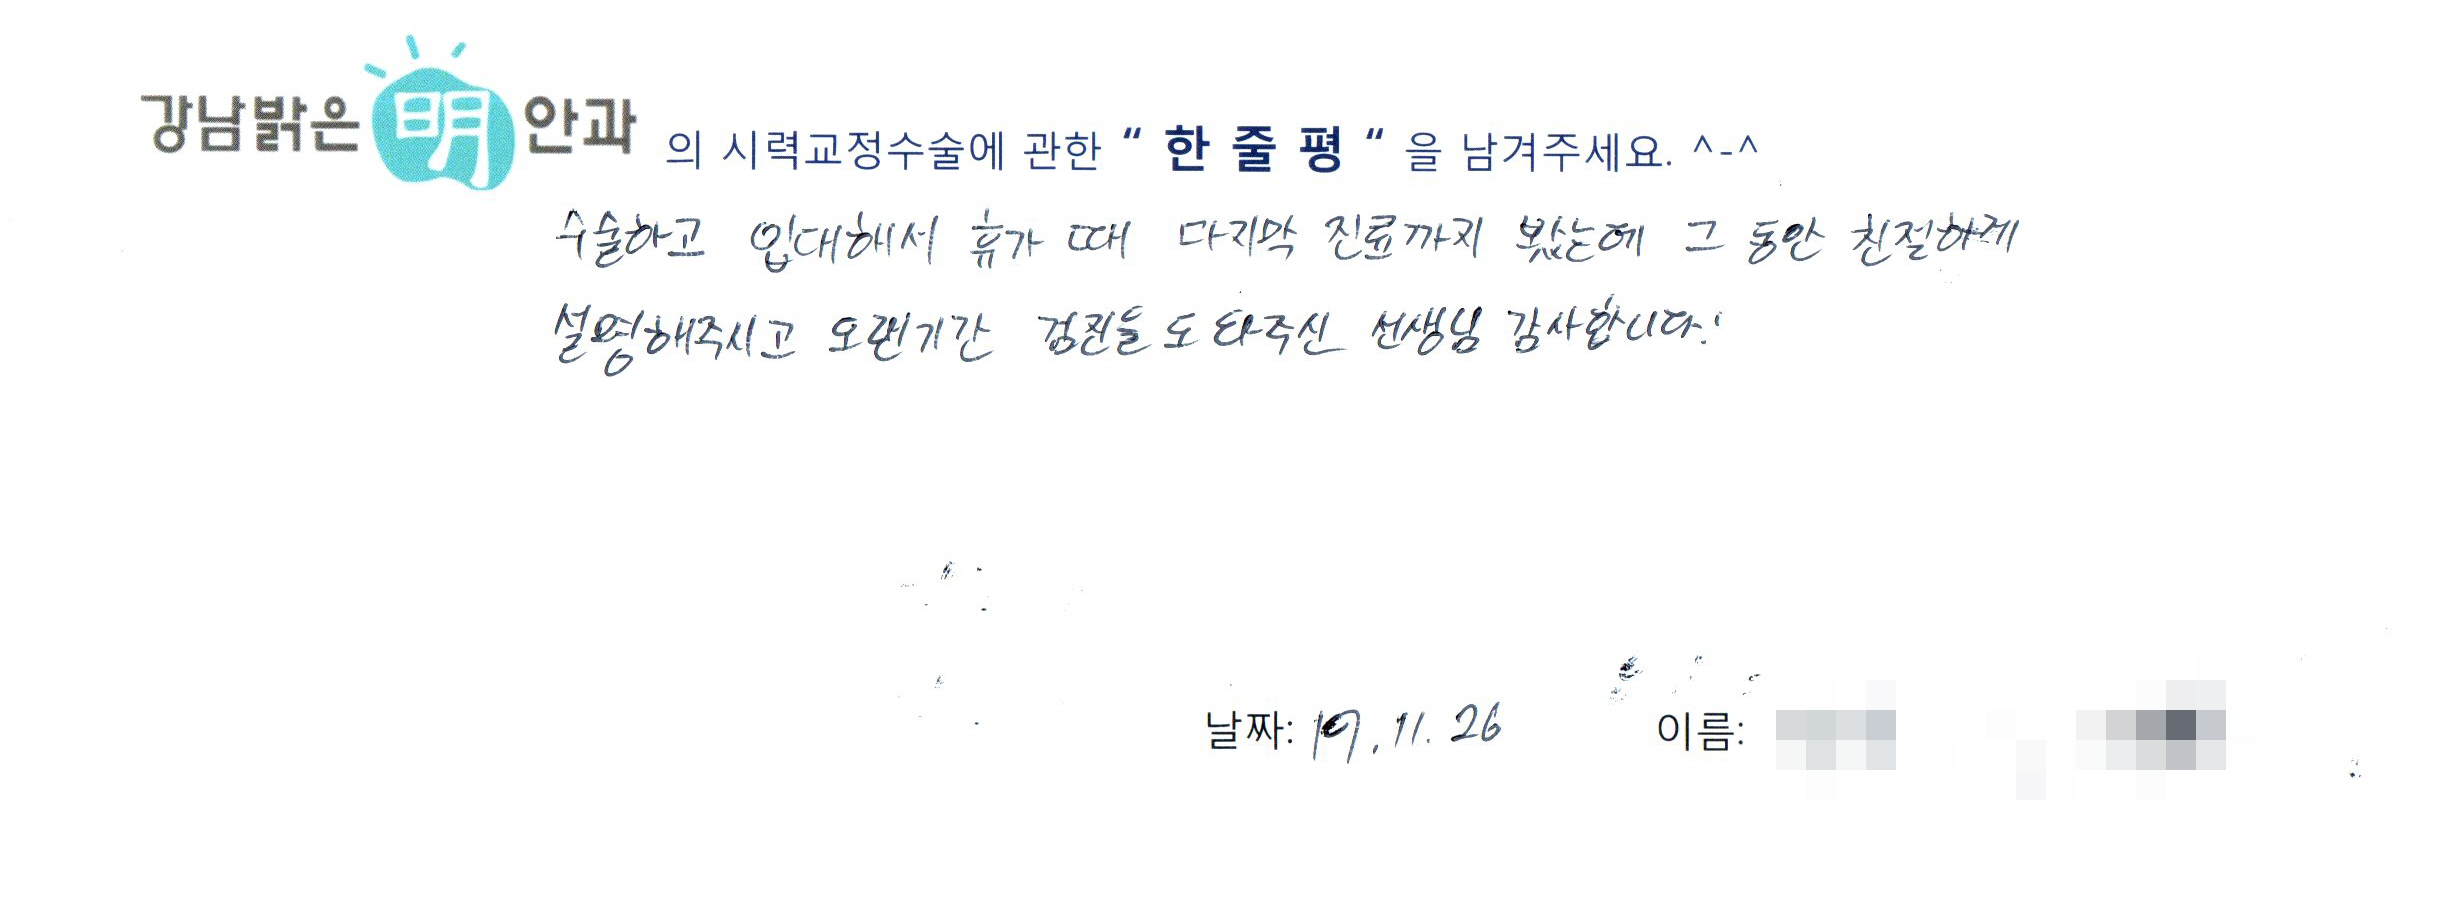 강남밝은 明 안과 의 시력교정수술에 관한 “ 한 줄 평 “ 을 남겨주세요. ^-^
수술하고 입대해서 휴가 때 다지막 진료까지 봤는데 그 동안 친절하게
설명해주시고 오랜기간 검진들 도와주신 선생님 감사합니다!
날짜: 19.11.26 이름: